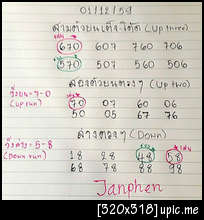 01/12/59
สามตัวบนเต็ง-โต๊ด (Up three)
670 607 760 706
570 507 560 506
สองตัวบนตรงๆ (Up two)
วิ่งบน-7-0 70 07 60 06
(Up run) 50 05 67 76
ล่างตรงๆ (Down)
วิ่งล่าง-5-8 18 28 48 58
(Down run) 68 78 88 98
Janphen
[320x318] uplc.me